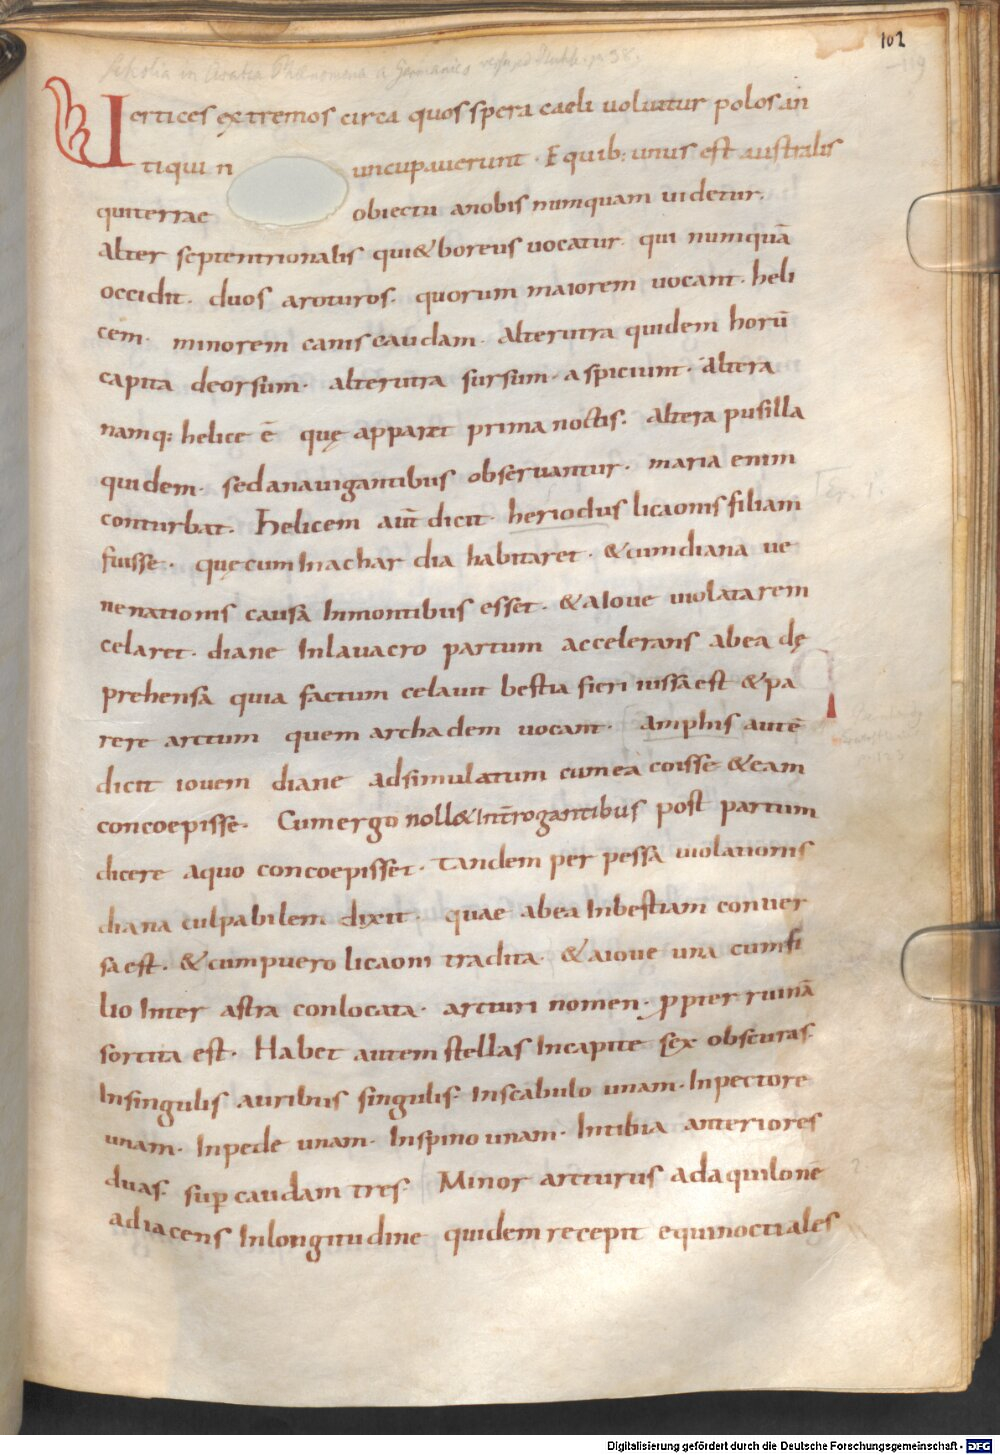 102
119
Scholia in Aratea Phaenomena a Germanico
Uertices extremos circa quos spera caeli uoluitur polos an
tiqui n uncupauerunt · E quib: unus est australis
qui terrae obiectu a nobis numquam uidetur.
Alter septentrionalis qui & boreus uocatur. qui numquā
occidit. duos arcturos. quorum maiorem uocant. heli
cem. minorem canis caudam. alterutra quidem horū
capita deorsum. alterutra sursum. aspiciunt. altera
namq; helice ē quę apparet prima noctis. altera pusilla
quidem. sed a nauigantibus obseruantur. maria enim
conturbat. Helicem aut̄ dicit heriodus licaonis filiam
fuisse. quę cum In achar dia habitaret. & cum diana ue
nenationis causa In montibus esset. & a Ioue uiolata rem
celaret. diane In lauacro partum accelerans ab ea dę
prehensa quia factum celauit bestia fieri iussa est & pa
rere arctum quem archadem uocant. Amphis autē
dicit iouem diane adsimulatum cum ea coisse & eam
concoepisse. Cum ergo noll& Int̄rogantibus post partum
dicere a quo concoepisset. tandem per pessa uiolationis
diana culpabilem dixit. quae ab ea In bestiam conuer
sa est. & cum puero licaoni tradita. & a ioue una cum fi
lio Inter astra conlocata. arcturi nomen. ꝓpter ruinā
sortita est. Habet autem stellas In capite sex obscuras.
In singulis auribus singulis. In scabulo unam. In pectore
unam. In pede unam. In spino unam. In tibia anteriores
duas. suꝑ caudam tres. Minor arcturus ad aquilonē
adiacens In longitudine quidem recepit equinoctiales
Digitalisierung gefördert durch die Deutsche Forschungsgemeinschaft - DFG